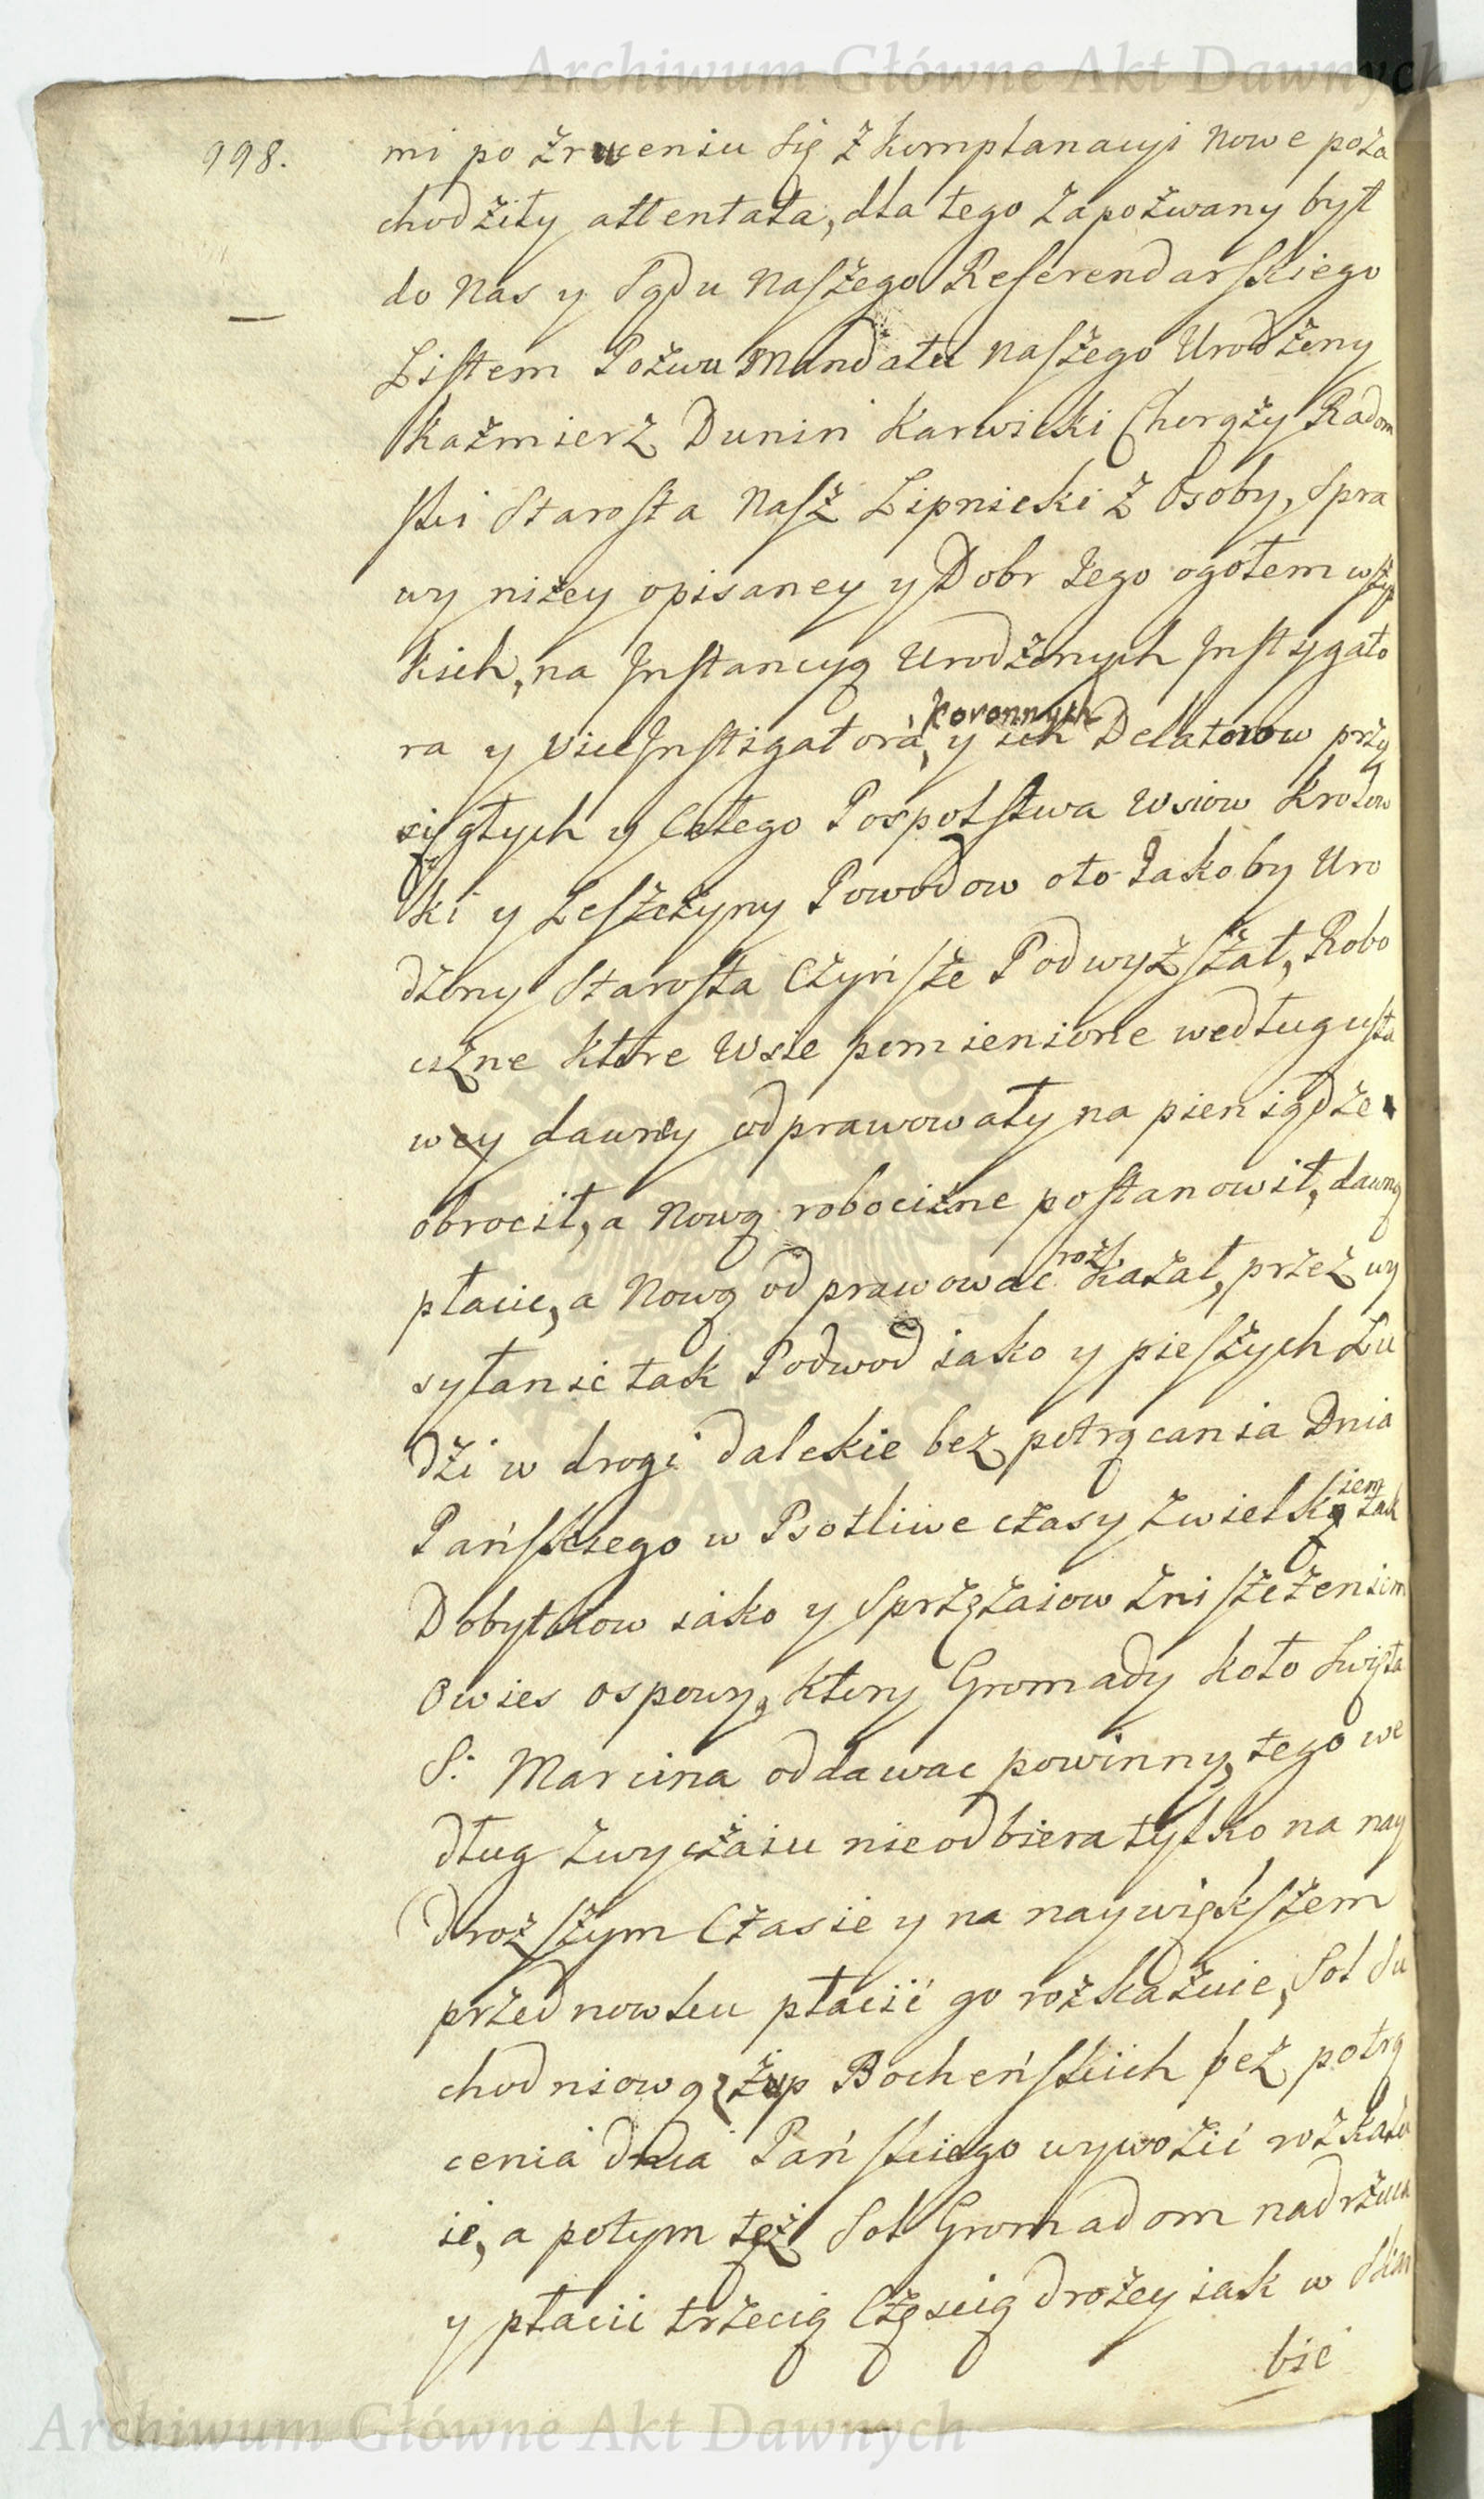 Archiwum Główne Akt Dawnych
998.
mi po zruceniu się z komplanacyi nowe poza
chodziły attentata, dla tego zapozwany był
do Nas y Sądu Naszego Referendarskiego
Listem Pozwu Mandatu naszego Urodzony
Kazmierz Dunin Karwicki Chorąży Radom
ski Starosta Nasz Lipnicki z Osoby, Spra
wy niżey opisaney y Dobr Jego ogołem wszys
kich, na Jnstancyą Urodzonych Jnstygato
ra y ViceJnstigatora, Koronnych y ich Delatorow przy
sięgłych y Całego Pospolstwa Wsiow Krolow
ki y Leszczyny Powodow oto Jakoby Uro
dzony Starosta Czynsze Podwyższał, Robo
cizne ktore Wsie pomienione według usta
wey dawney odprawowały na pieniądze
obrocił, a Nową robocizne postanowił, dawną
płacic, a Nową odprawowac rozkazał, przez wy
syłanie tak Podwod iako y pieszych Lu
dzi w drogi dalekie bez potrącania Dnia
Pańskiego w Psotliwe czasy z wielkiem tak
Dobytkow iako y Sprzężaiow zniszczeniem
Owies ospowy, ktory Gromady koło Swięta
S: Marcina oddawac powinny, tego we
dług zwyczaiu nieodbiera tylko na nay
droższym Czasie y na naywiększem
przednowku płacić go rozkazuie, Sol Su
chodniową z żup Bocheńskich bez potrą
cenia dnia Pańskiego wywozić rozkazu
ie, a potym też Sol Gromadom nadrzuca
y płacić trzecią Częscią drożey iak w Skar
bie
Archiwum Główne Akt Dawnych